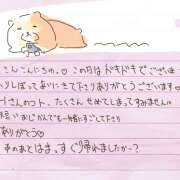 こんにちわ♡ この間はドキドキでございま
りしぼってあいにきて下さりありがとうございます
さんのコト、たくさんせめてしまってすみません
おじかんでも一緒にすごして下さり
ありがとう♡
そのあとはま、すぐ帰れましたか~?